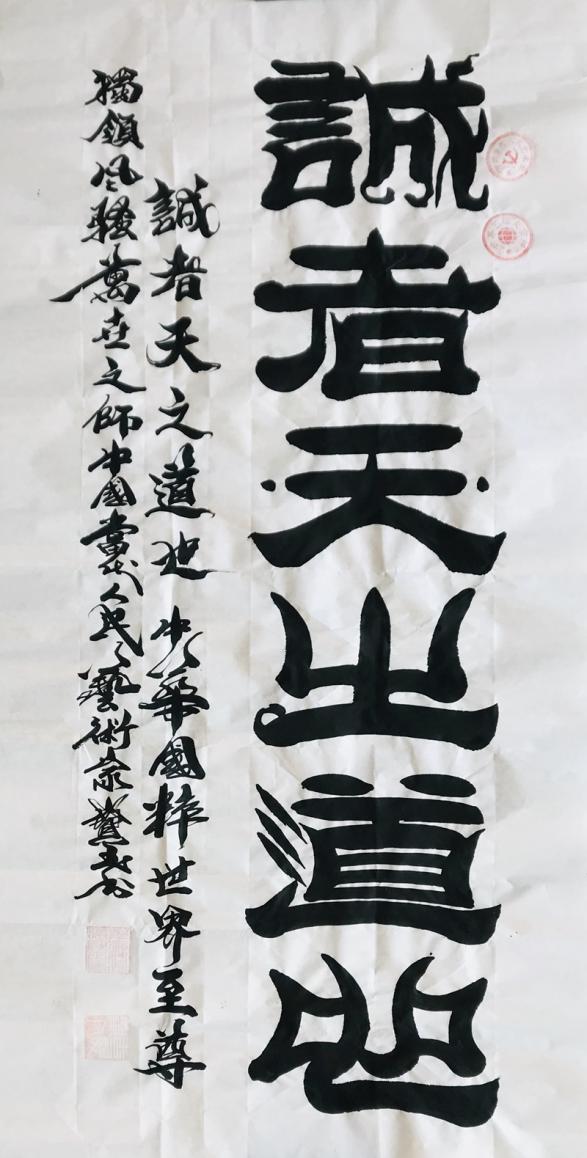 誠者天之道也
誠者天之道也 中華國粹世界至尊
獨領风骚萬世之師中國當代人民藝術家龔